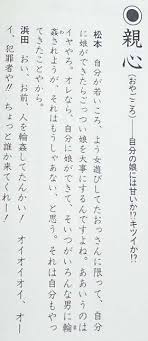 親心
（おやごころ）——自分の娘には甘いか!? キツイか!?
松本　自分が若いころ、よう女遊びしてたおっさんに限って、自分
に娘ができたらごっつい娘を大事にするんですよね。ああいうのは
イヤやろ。オレなら、自分に娘ができて、そいつがいろんな男に輪
姦されようが、それはもうしゃあない、と思う。それは自分もやっ
てきたことやから。
浜田　おい、お前、人を輪姦してたんかい！　オイオイオイ、オー
イ、犯罪者や!!　ちょっと誰か来てくれー！